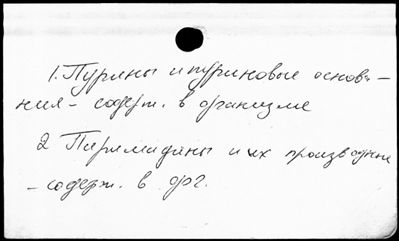 1. Пурины и пуриновые основа-
ния - содерж. в организме
2 Пиримидины и их производные
- содерж. в орг.